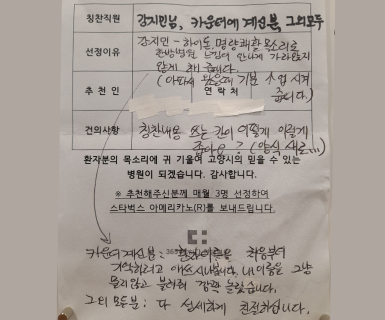 칭찬직원 강지민님, 카운터에 계신분, 그외모두
선정이유 강지민 - 하이톤, 명량쾌활 목소리로
한방병원 느낌이 안나게 가라앉지
않게 해 줍니다.
(아파서 왔는데 기분 up 시켜
줍니다.)
추 천 인 연 락 처
건의사항 칭찬내용 쓰는 칸이 어떻게 이렇게
좁아요? (양식 새로...)
환자분의 목소리에 귀 기울여 고양시의 믿을 수 있는
병원이 되겠습니다. 감사합니다.
※ 추천해주신분께 매월 3명 선정하여
스타벅스 아메리카노(R)를 보내드립니다.
카운터계신분 : 환자이름을 처음부터
기억하려고 애쓰시나봅니다. 내이름은 그냥
물리않고 불러줘 깜짝 놀랐습니다.
그외 모두분 : 다 섬세하게 친절하십니다.